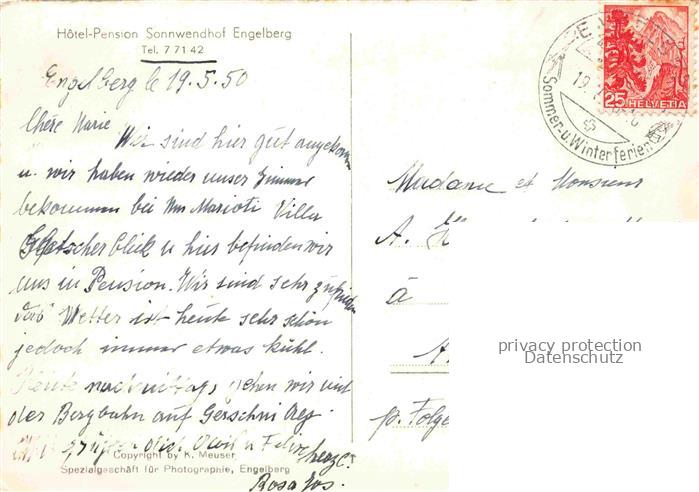 Hôtel-Pension Sonnwendhof Engelberg
Tel. 7 71 42
Engelberg le 19.5.50
Chère Marie
Wir sind hier gut angekommen
u. wir haben wieder unser Zimmer
bekommen bei Mariott Villa
Gletscherblick u hier befinden wir
uns in Pension. Wir sind sehr zufrieden
Wetter ist heute sehr schön
jedoch immer etwas kühl.
Heute nachmittags gehen wir mit
der Bergbahn auf Gerschni Alp.
grüssen dich u
herzl.
Copyright by K. Meuser
Spezialgeschäft für Photographie, Engelberg
Rosa Jos.
25 HELVETIA
Sommer- u. Winterferien
Madame et Monsieur
A.
à
p. Folge
privacy protection
Datenschutz